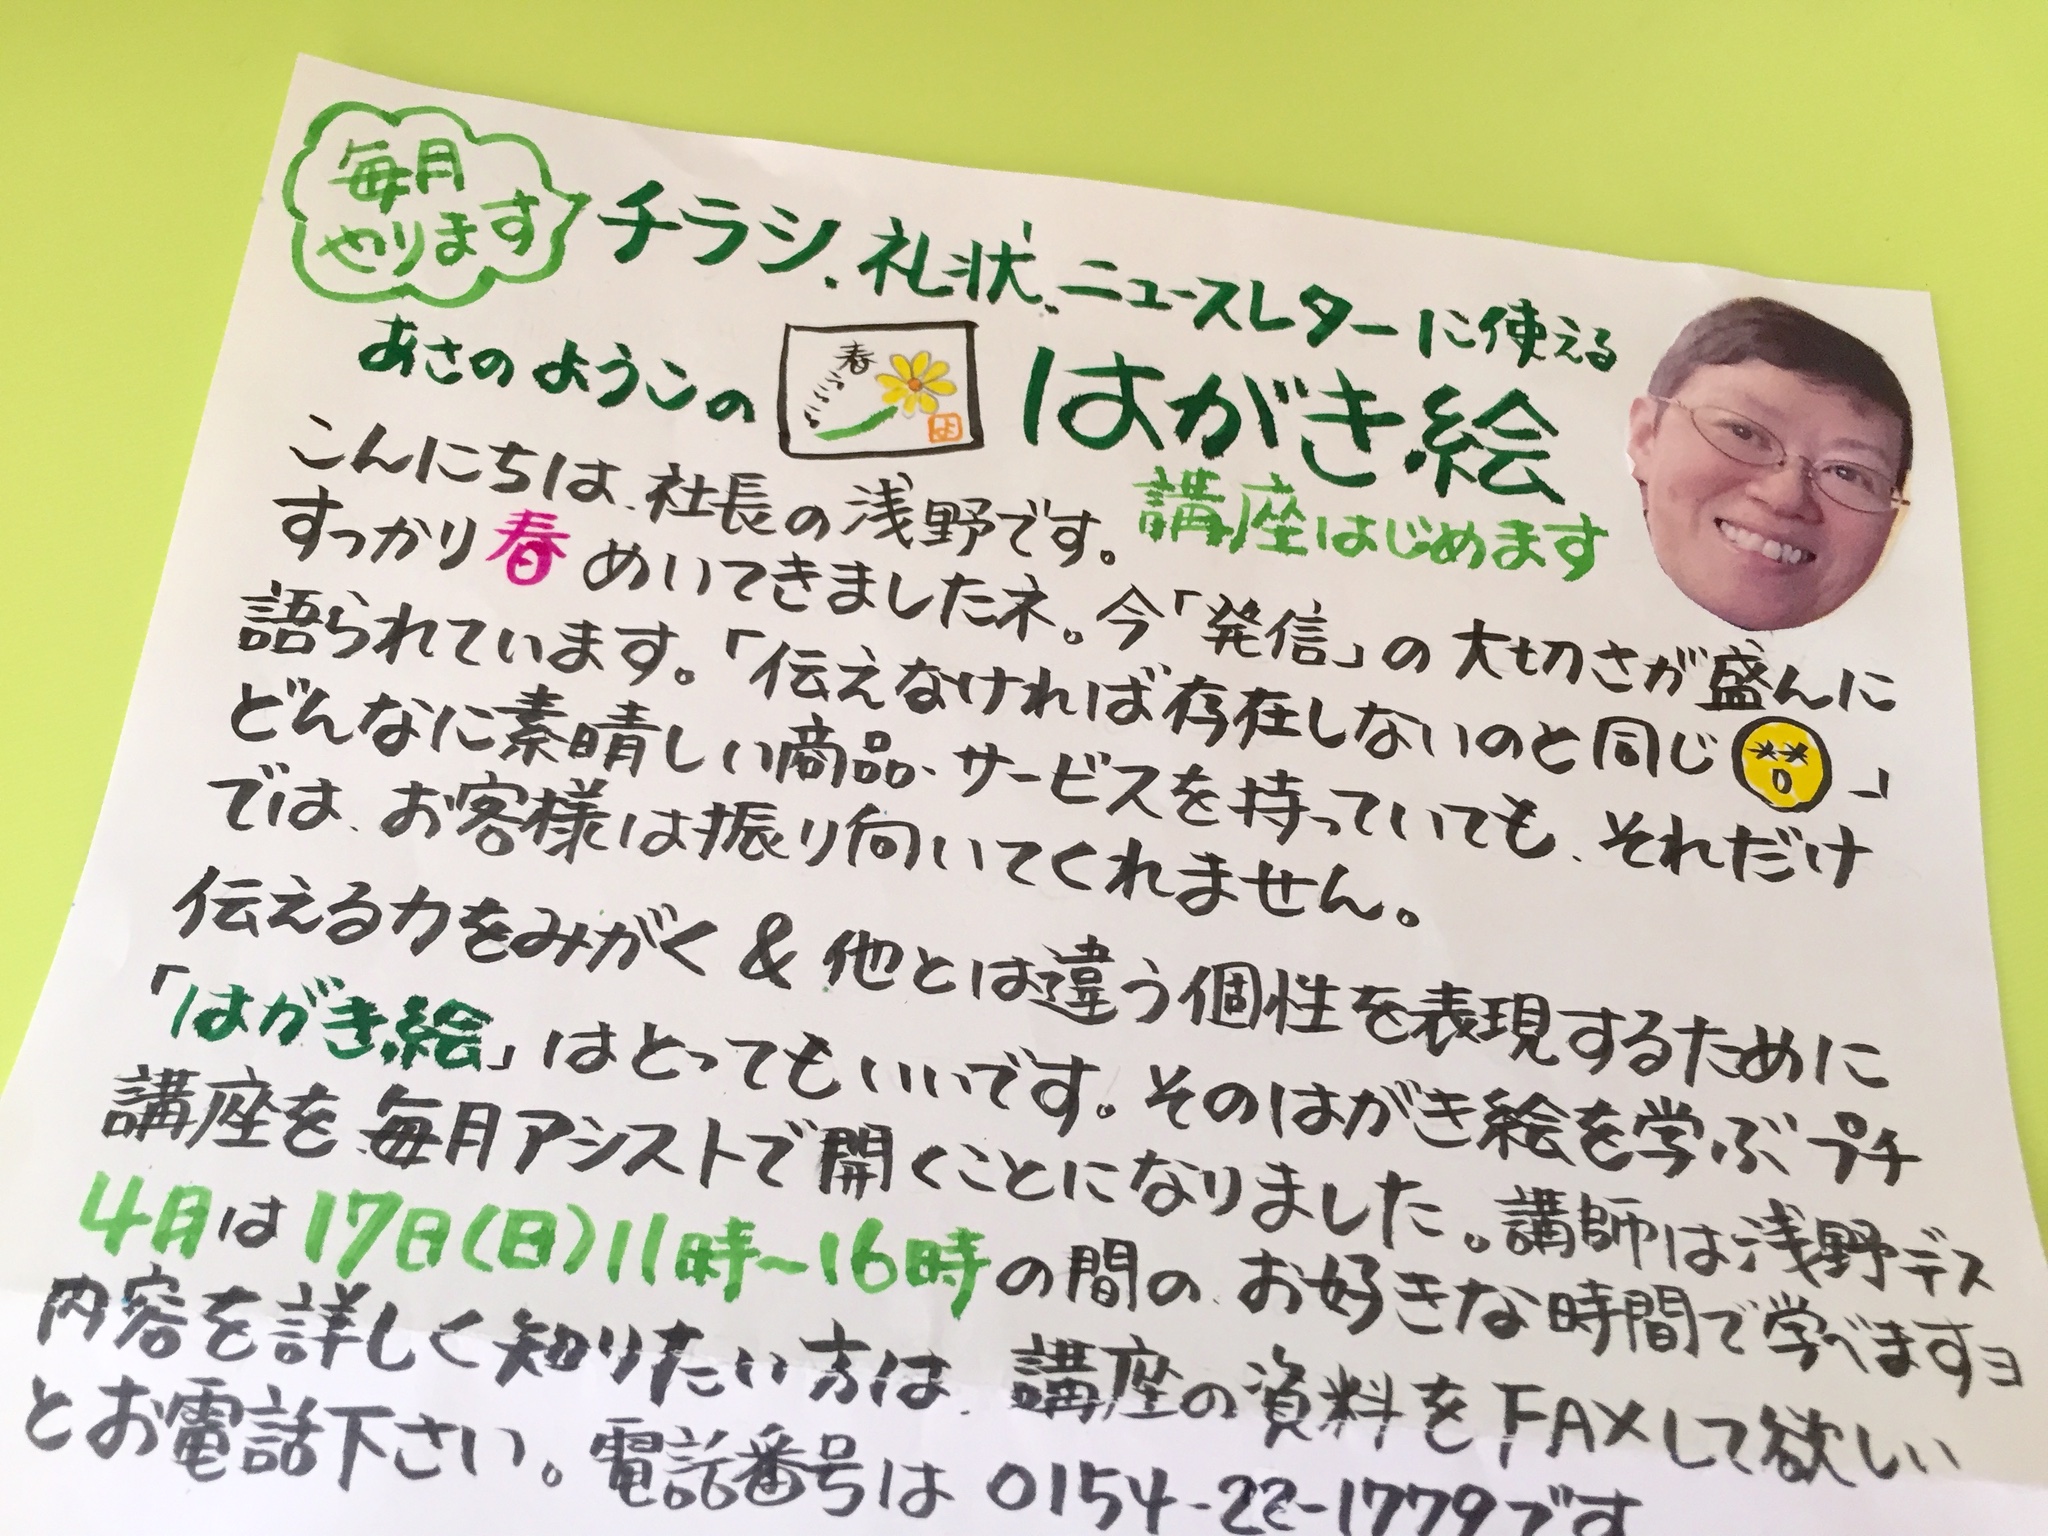 毎月
やります
チラシ、礼状、ニュースレターに使える
あさのようこの
春
よ
はがき絵
講座はじめます
こんにちは、社長の浅野です。
すっかり春めいてきましたネ。今「発信」の大切さが盛んに
語られています。「伝えなければ存在しないのと同じ」
どんなに素晴しい商品・サービスを持っていても、それだけ
では、お客様は振り向いてくれません。
伝える力をみがく&他とは違う個性を表現するために
「はがき絵」はとってもいいです。そのはがき絵を学ぶプチ
講座を毎月アシストで開くことになりました。講師は浅野デス
4月は17日(日)11時~16時の間の、お好きな時間で学べますヨ
内容を詳しく知りたい方は、講座の資料をFAXして欲しい
とお電話下さい。電話番号は0154-22-1779です